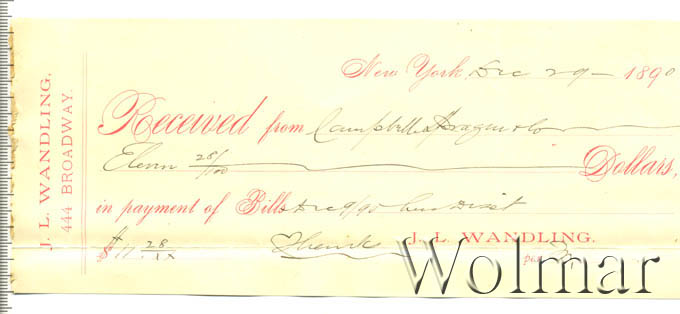 J. L. WANDLING,
444 BROADWAY.
New York, Dec 29 1890
Received from Campbell & Co
Eleven 28/100 Dollars,
in payment of Bill Dec 9/90 less Disct
$ 11 28/xx Thanks J. L. WANDLING.
per
Wolmar